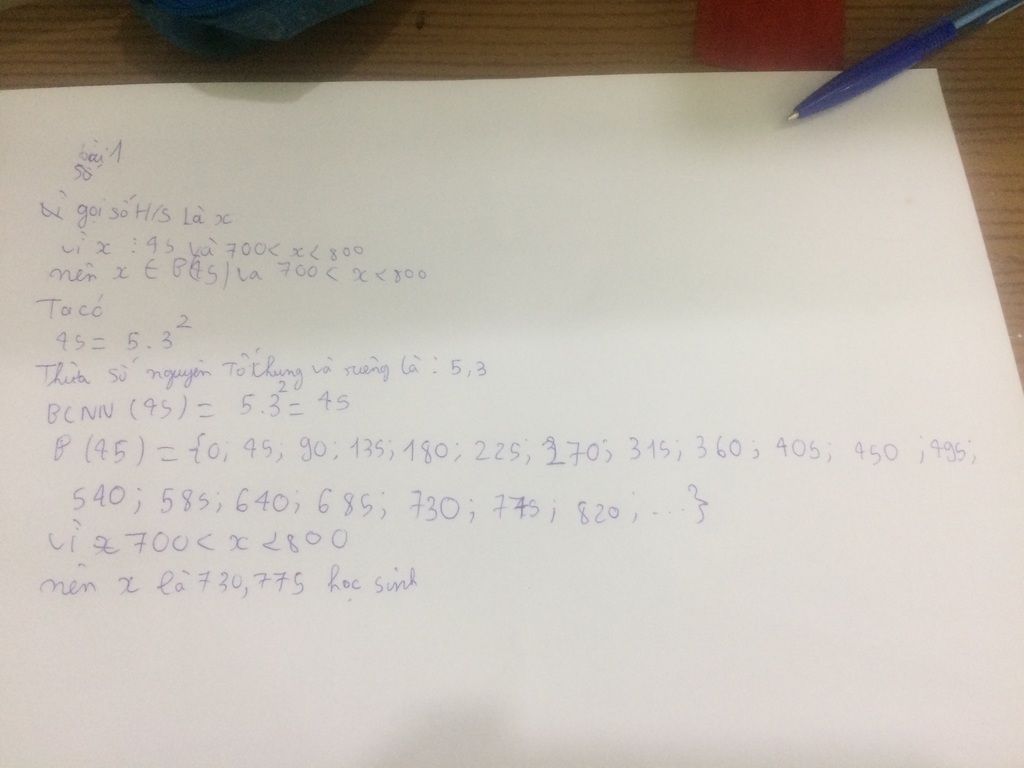 bài 1
Vì gọi số H/S là x
vì x ⋮ 45 và 700 < x < 800
nên x ∈ B(45) và 700 < x < 800
Ta có
45 = 5.3²
Thừa số nguyên tố chung và riêng là : 5,3
BCNN (45) = 5.3² = 45
B (45) = {0; 45; 90; 135; 180; 225; 270; 315; 360; 405; 450 ; 495;
540; 585; 640; 685; 730; 775; 820; ...}
vì x 700 < x < 800
nên x là 730,775 học sinh